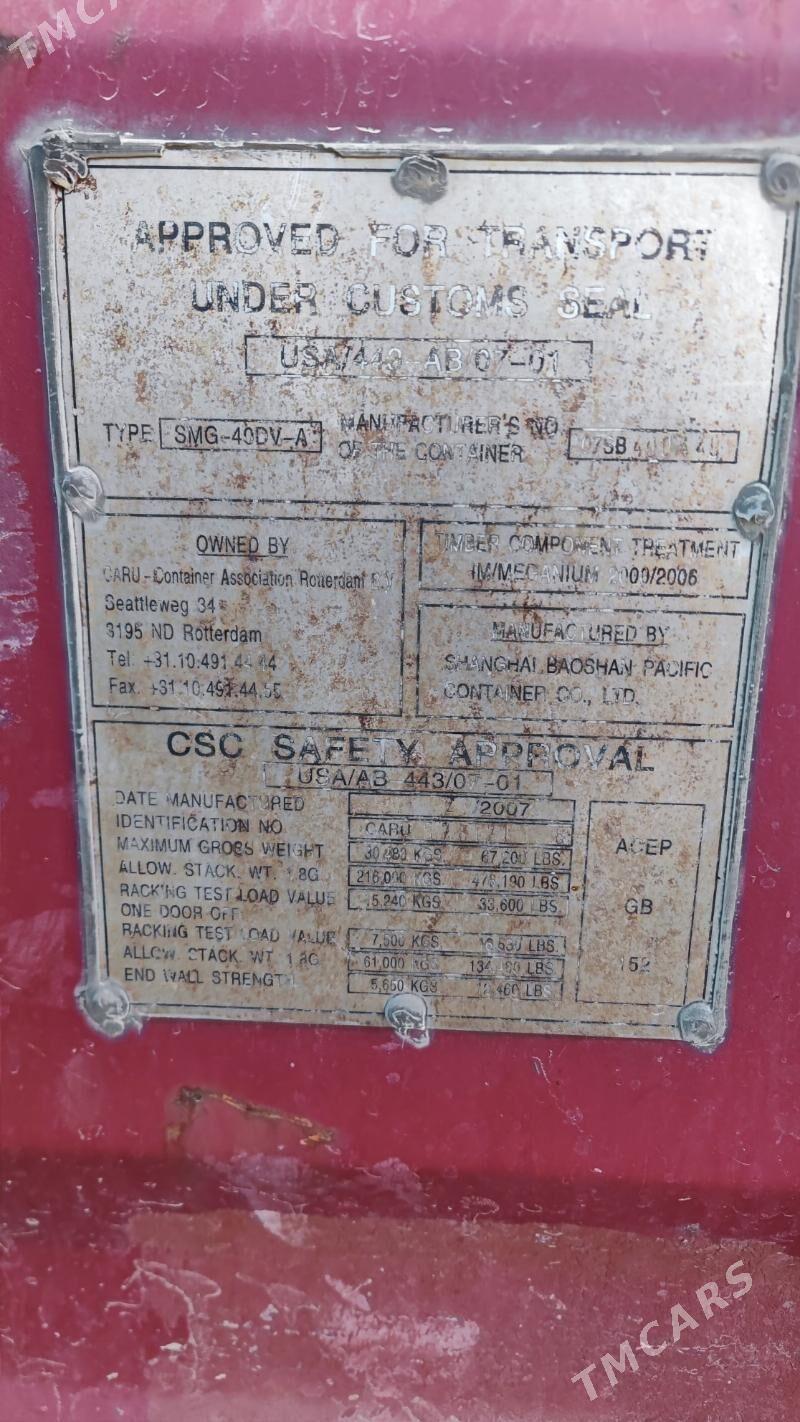 TMCARS
APPROVED FOR TRANSPORT
UNDER CUSTOMS SEAL
USA/443-AB/07-01
TYPE SMG-40DV-A
MANUFACTURER'S NO
OF THE CONTAINER
07SB
OWNED BY
CARU-Container Association Rotterdam B.V
Seattleweg 34
3195 ND Rotterdam
Tel. +31.10.491.44.44
Fax. +31.10.491.44.55
TIMBER COMPONENT TREATMENT
IM/MECANIUM 2000/2006
MANUFACTURED BY
SHANGHAI BAOSHAN PACIFIC
CONTAINER CO., LTD.
CSC SAFETY APPROVAL
USA/AB 443/07-01
DATE MANUFACTURED /2007
IDENTIFICATION NO CARU
MAXIMUM GROSS WEIGHT 30,480 KGS 67,200 LBS.
ALLOW. STACK. WT. 1.8G 216,000 KGS 476,190 LBS.
RACKING TEST LOAD VALUE 15,240 KGS 33,600 LBS.
ONE DOOR OFF
RACKING TEST LOAD VALUE 7,500 KGS LBS.
ALLOW. STACK. WT. 1.8G 61,000 KGS LBS.
END WALL STRENGTH 5,650 KGS 12,460 LBS.
ACEP
GB
152
TMCARS